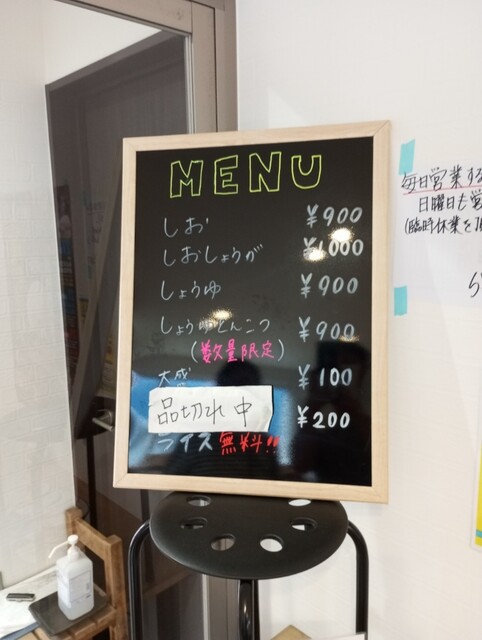 MENU
しお ¥900
しおしょうが ¥1000
しょうゆ ¥900
しょうゆとんこつ ¥900
(数量限定)
大盛 ¥100
品切れ中 ¥200
ライス無料!!
毎日営業する
日曜日も営
(臨時休業を